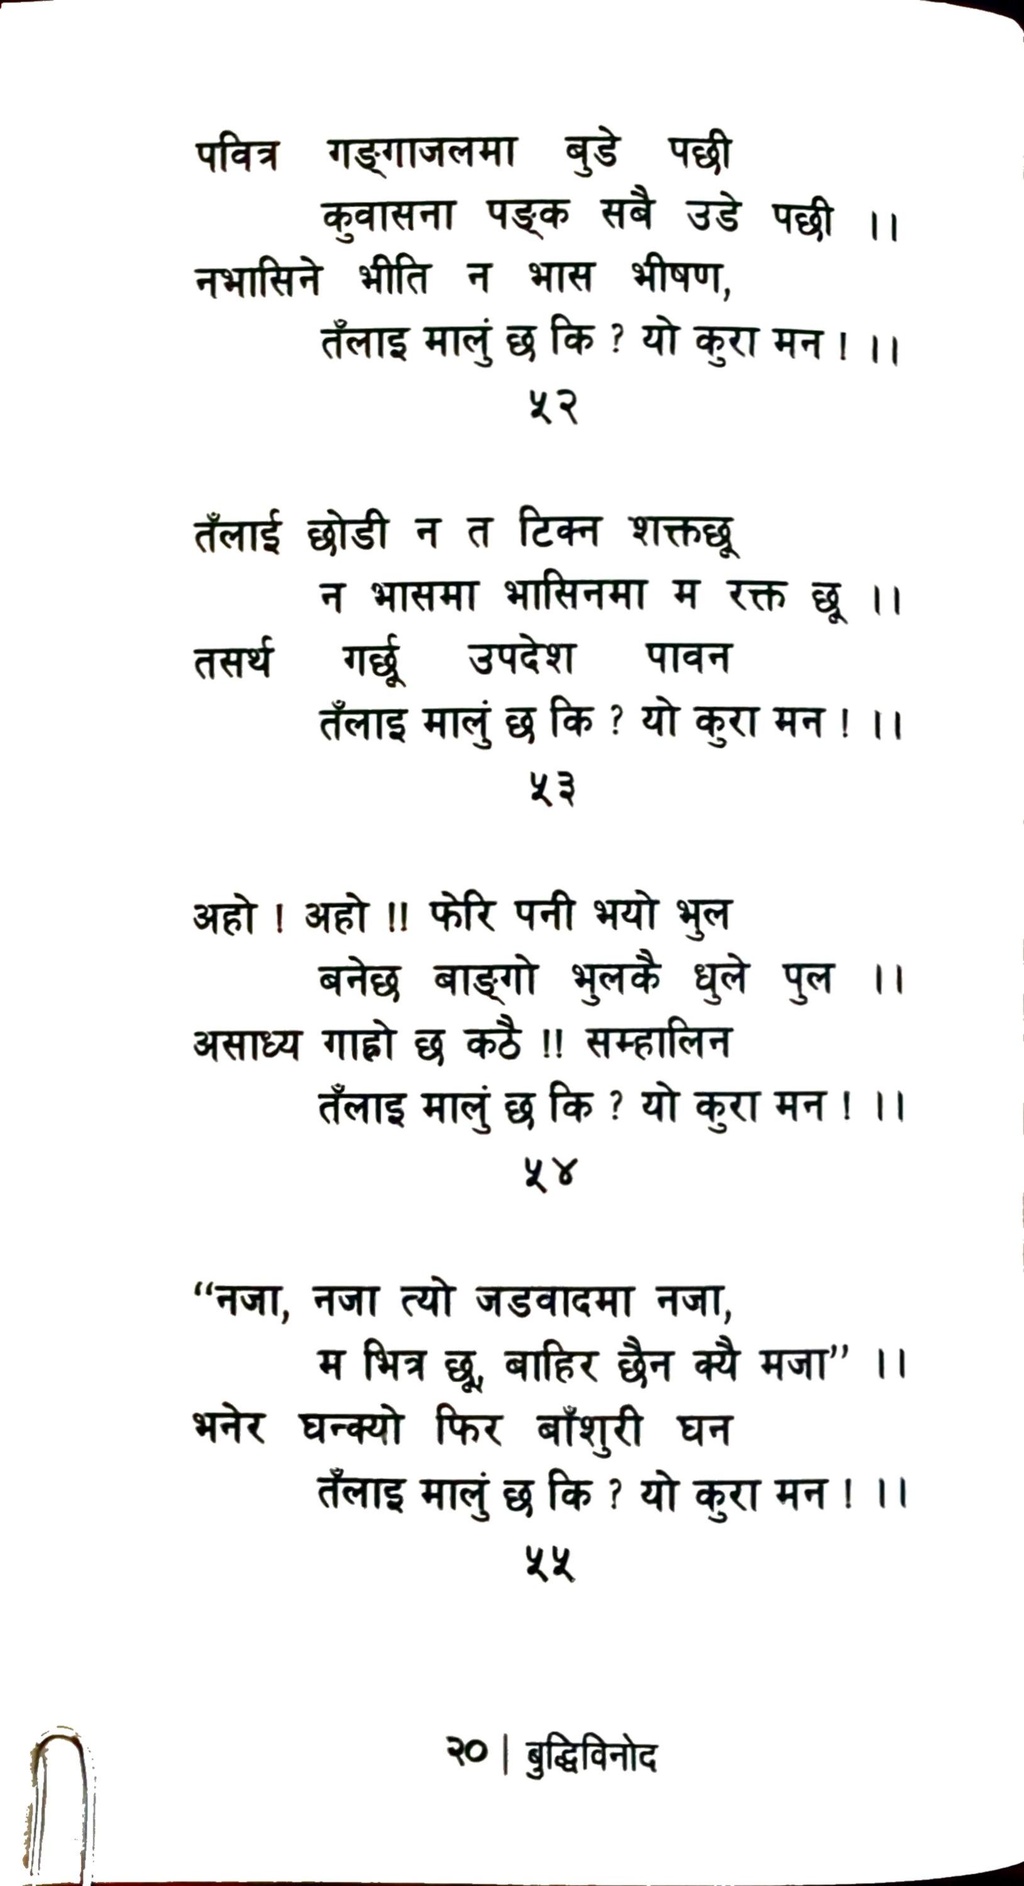 पवित्र गङ्गाजलमा बुडे पछी
कुवासना पङ्क सबै उडे पछी ।।
नभासिने भीति न भास भीषण,
तँलाइ मालुं छ कि ? यो कुरा मन ! ।।
५२
तँलाई छोडी न त टिक्न शक्तछू
न भासमा भासिनमा म रक्त छू ।।
तसर्थ गर्छू उपदेश पावन
तँलाइ मालुं छ कि ? यो कुरा मन ! ।।
५३
अहो ! अहो !! फेरि पनी भयो भुल
बनेछ बाङ्गो भुलकै धुले पुल ।।
असाध्य गाह्रो छ कठै !! सम्हालिन
तँलाइ मालुं छ कि ? यो कुरा मन ! ।।
५४
“नजा, नजा त्यो जडवादमा नजा,
म भित्र छू, बाहिर छैन क्यै मजा” ।।
भनेर घन्क्यो फिर बाँशुरी घन
तँलाइ मालुं छ कि ? यो कुरा मन ! ।।
५५
२० | बुद्धिविनोद